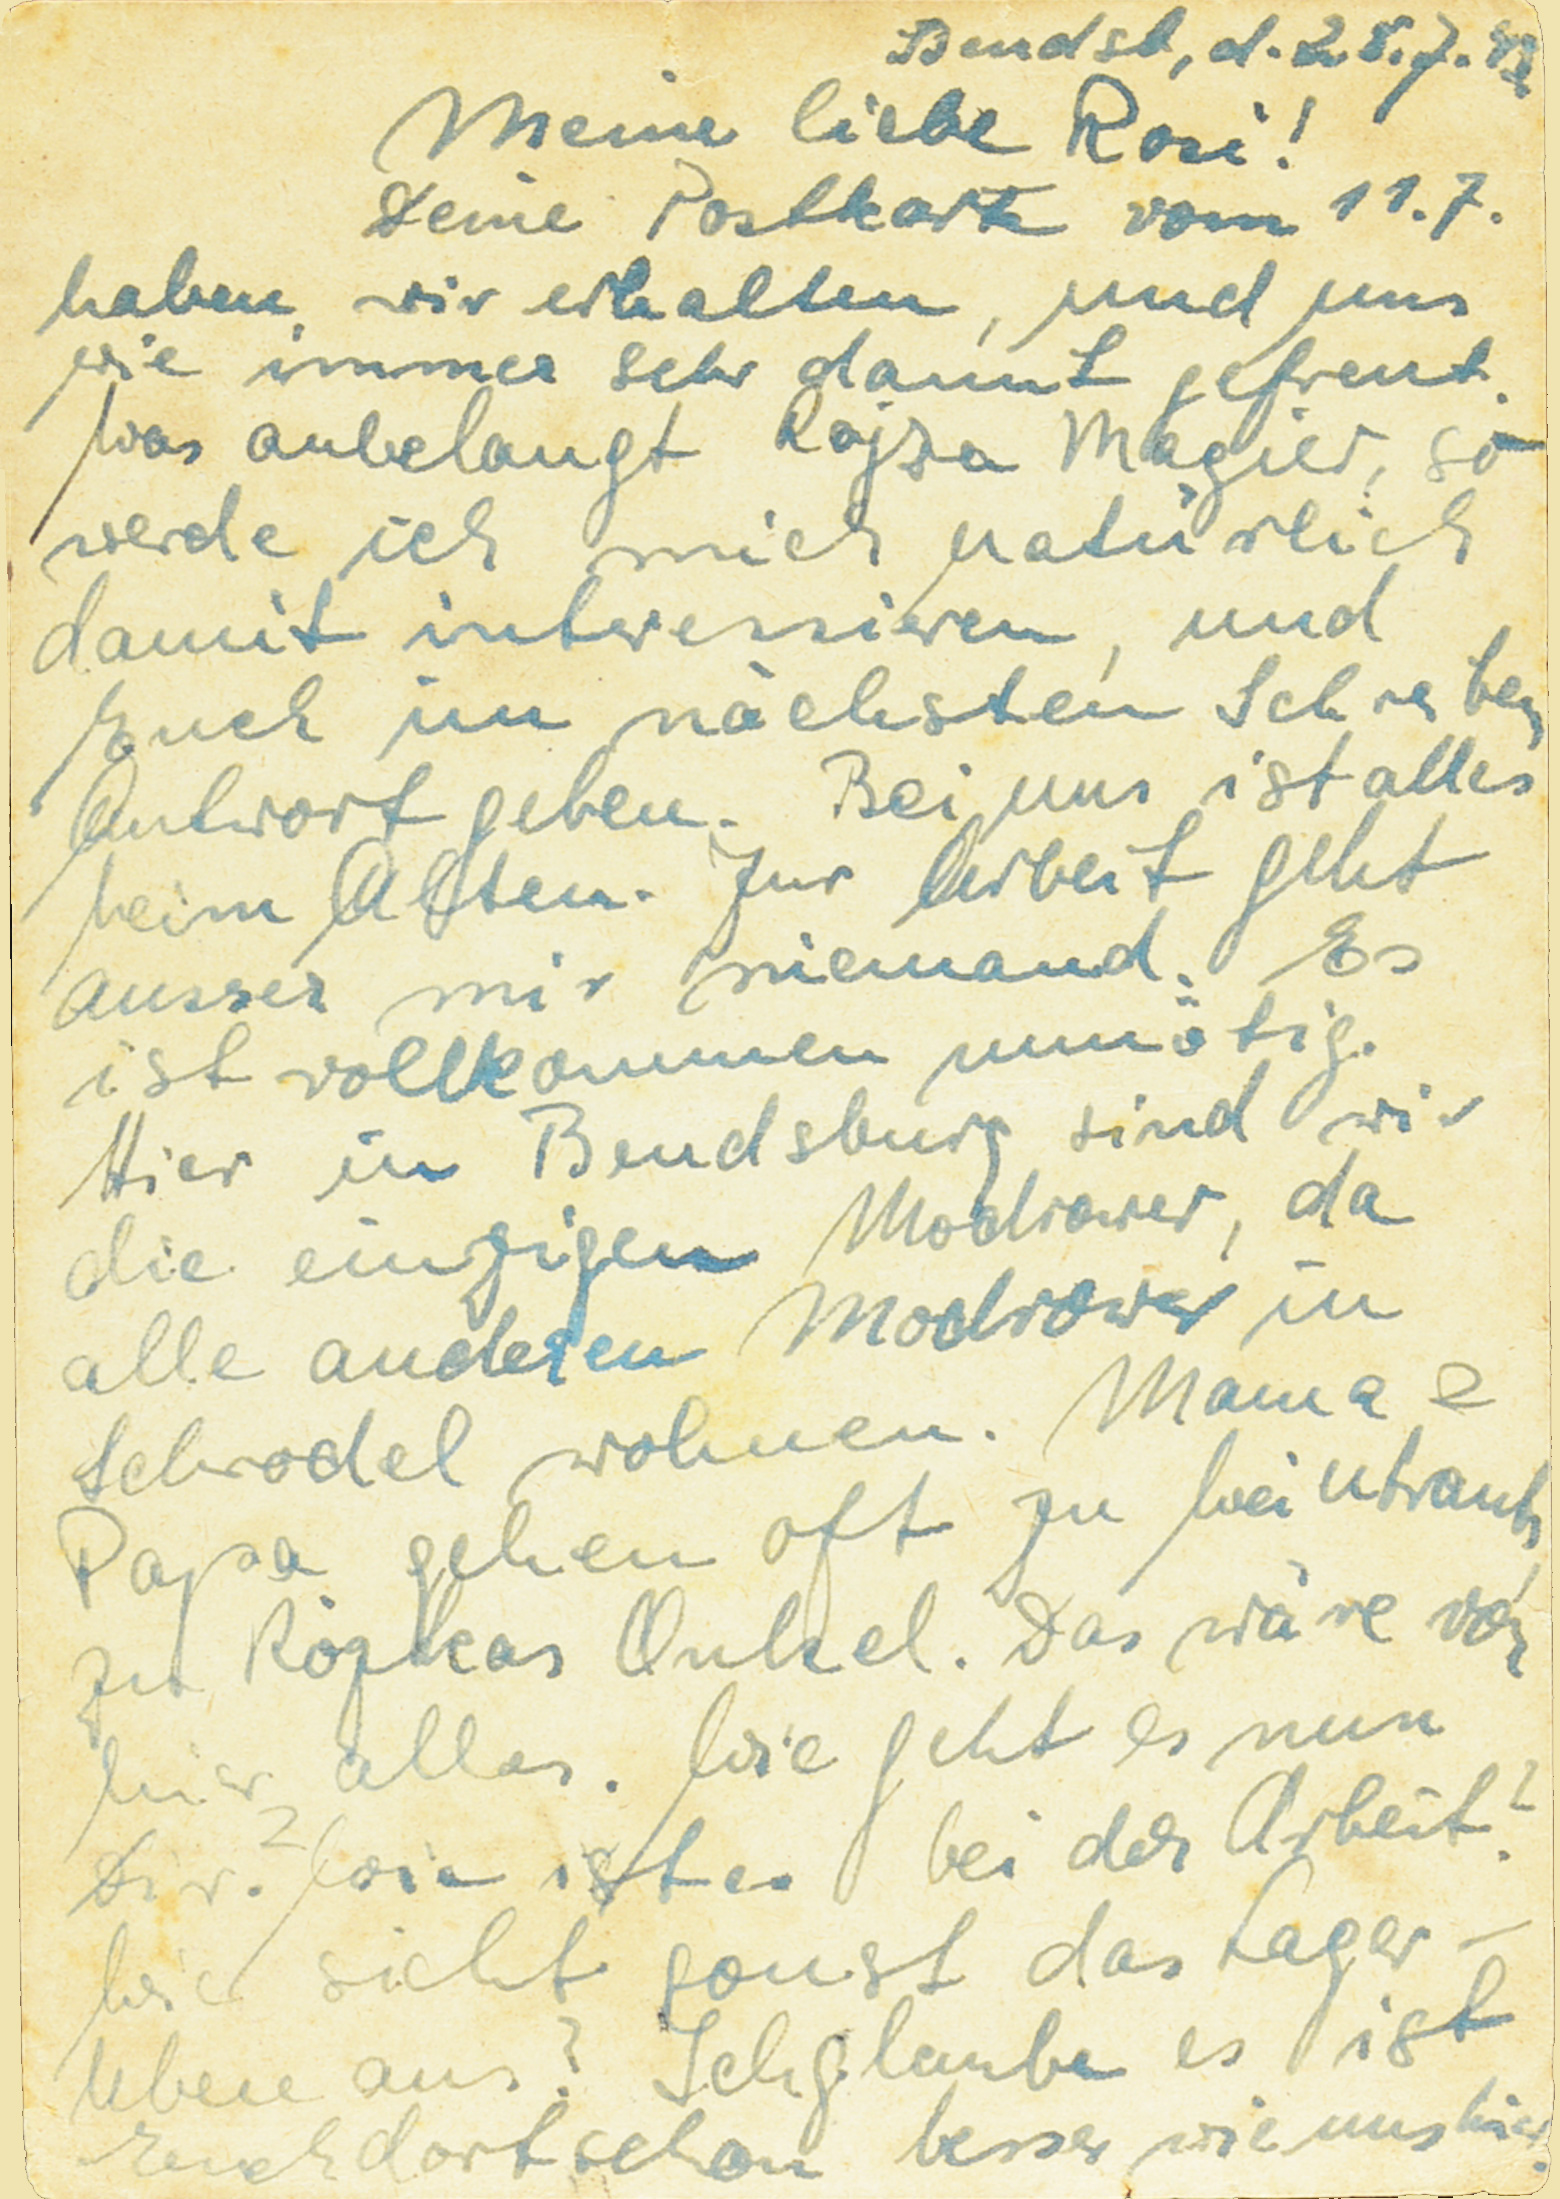 Bendsb, d. 28.7.43
Meine liebe Rosi!
Deine Postkarte vom 11.7.
haben wir erhalten, und uns
wie immer sehr damit gefreut.
Was anbelangt Rajza Magier, so
werde ich mich natürlich
damit interessieren, und
Euch im nächsten Schreiben
Antwort geben. Bei uns ist alles
beim Alten. Zur Arbeit geht
ausser mir niemand. Es
ist vollkommen unnötig.
Hier in Bendsburg sind wir
die einzigen Modrower, da
alle anderen Modrower in
Schrodel wohnen. Mama &
Papa gehen oft zu Weintraub,
zu Rózkas Onkel. Das wäre von
hier alles. Wie geht es nun
Dir? Wie ist es bei der Arbeit?
Wie sieht sonst das Lager-
leben aus? Ich glaube es ist
Euch dort schon besser wie uns hier.